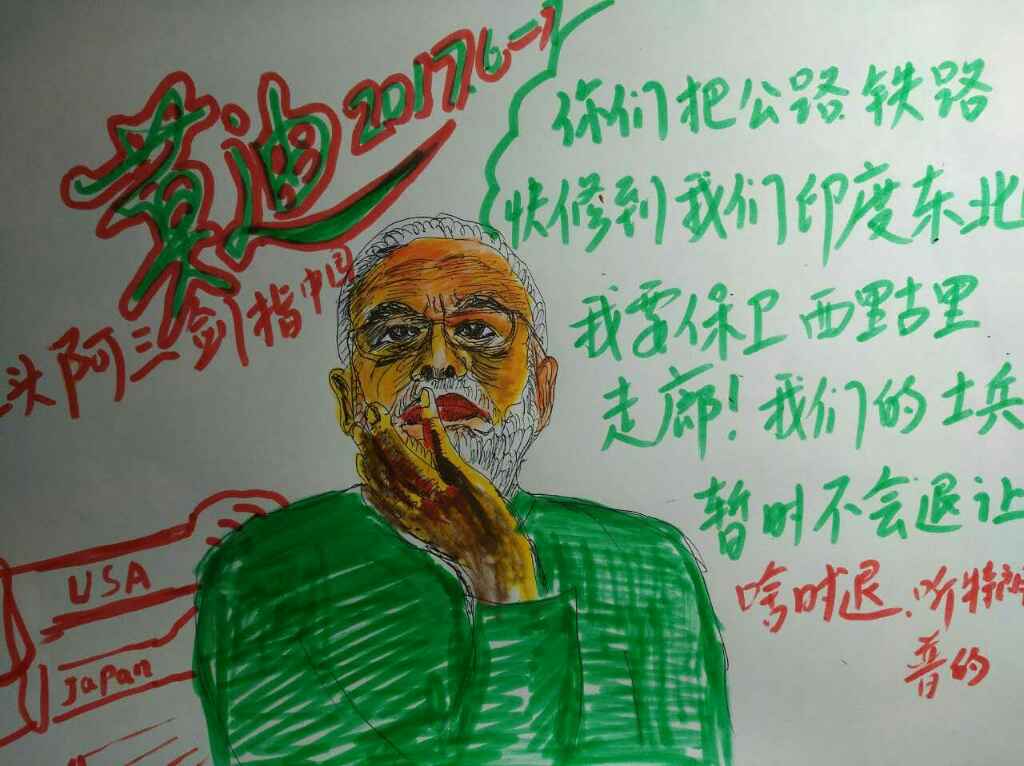 莫迪
2017.6-7
头阿三剑指中国
你们把公路铁路
快修到我们印度东北
我要保卫西里古里
走廊！我们的士兵
暂时不会退让
啥时退.听特朗
普的
USA
Japan